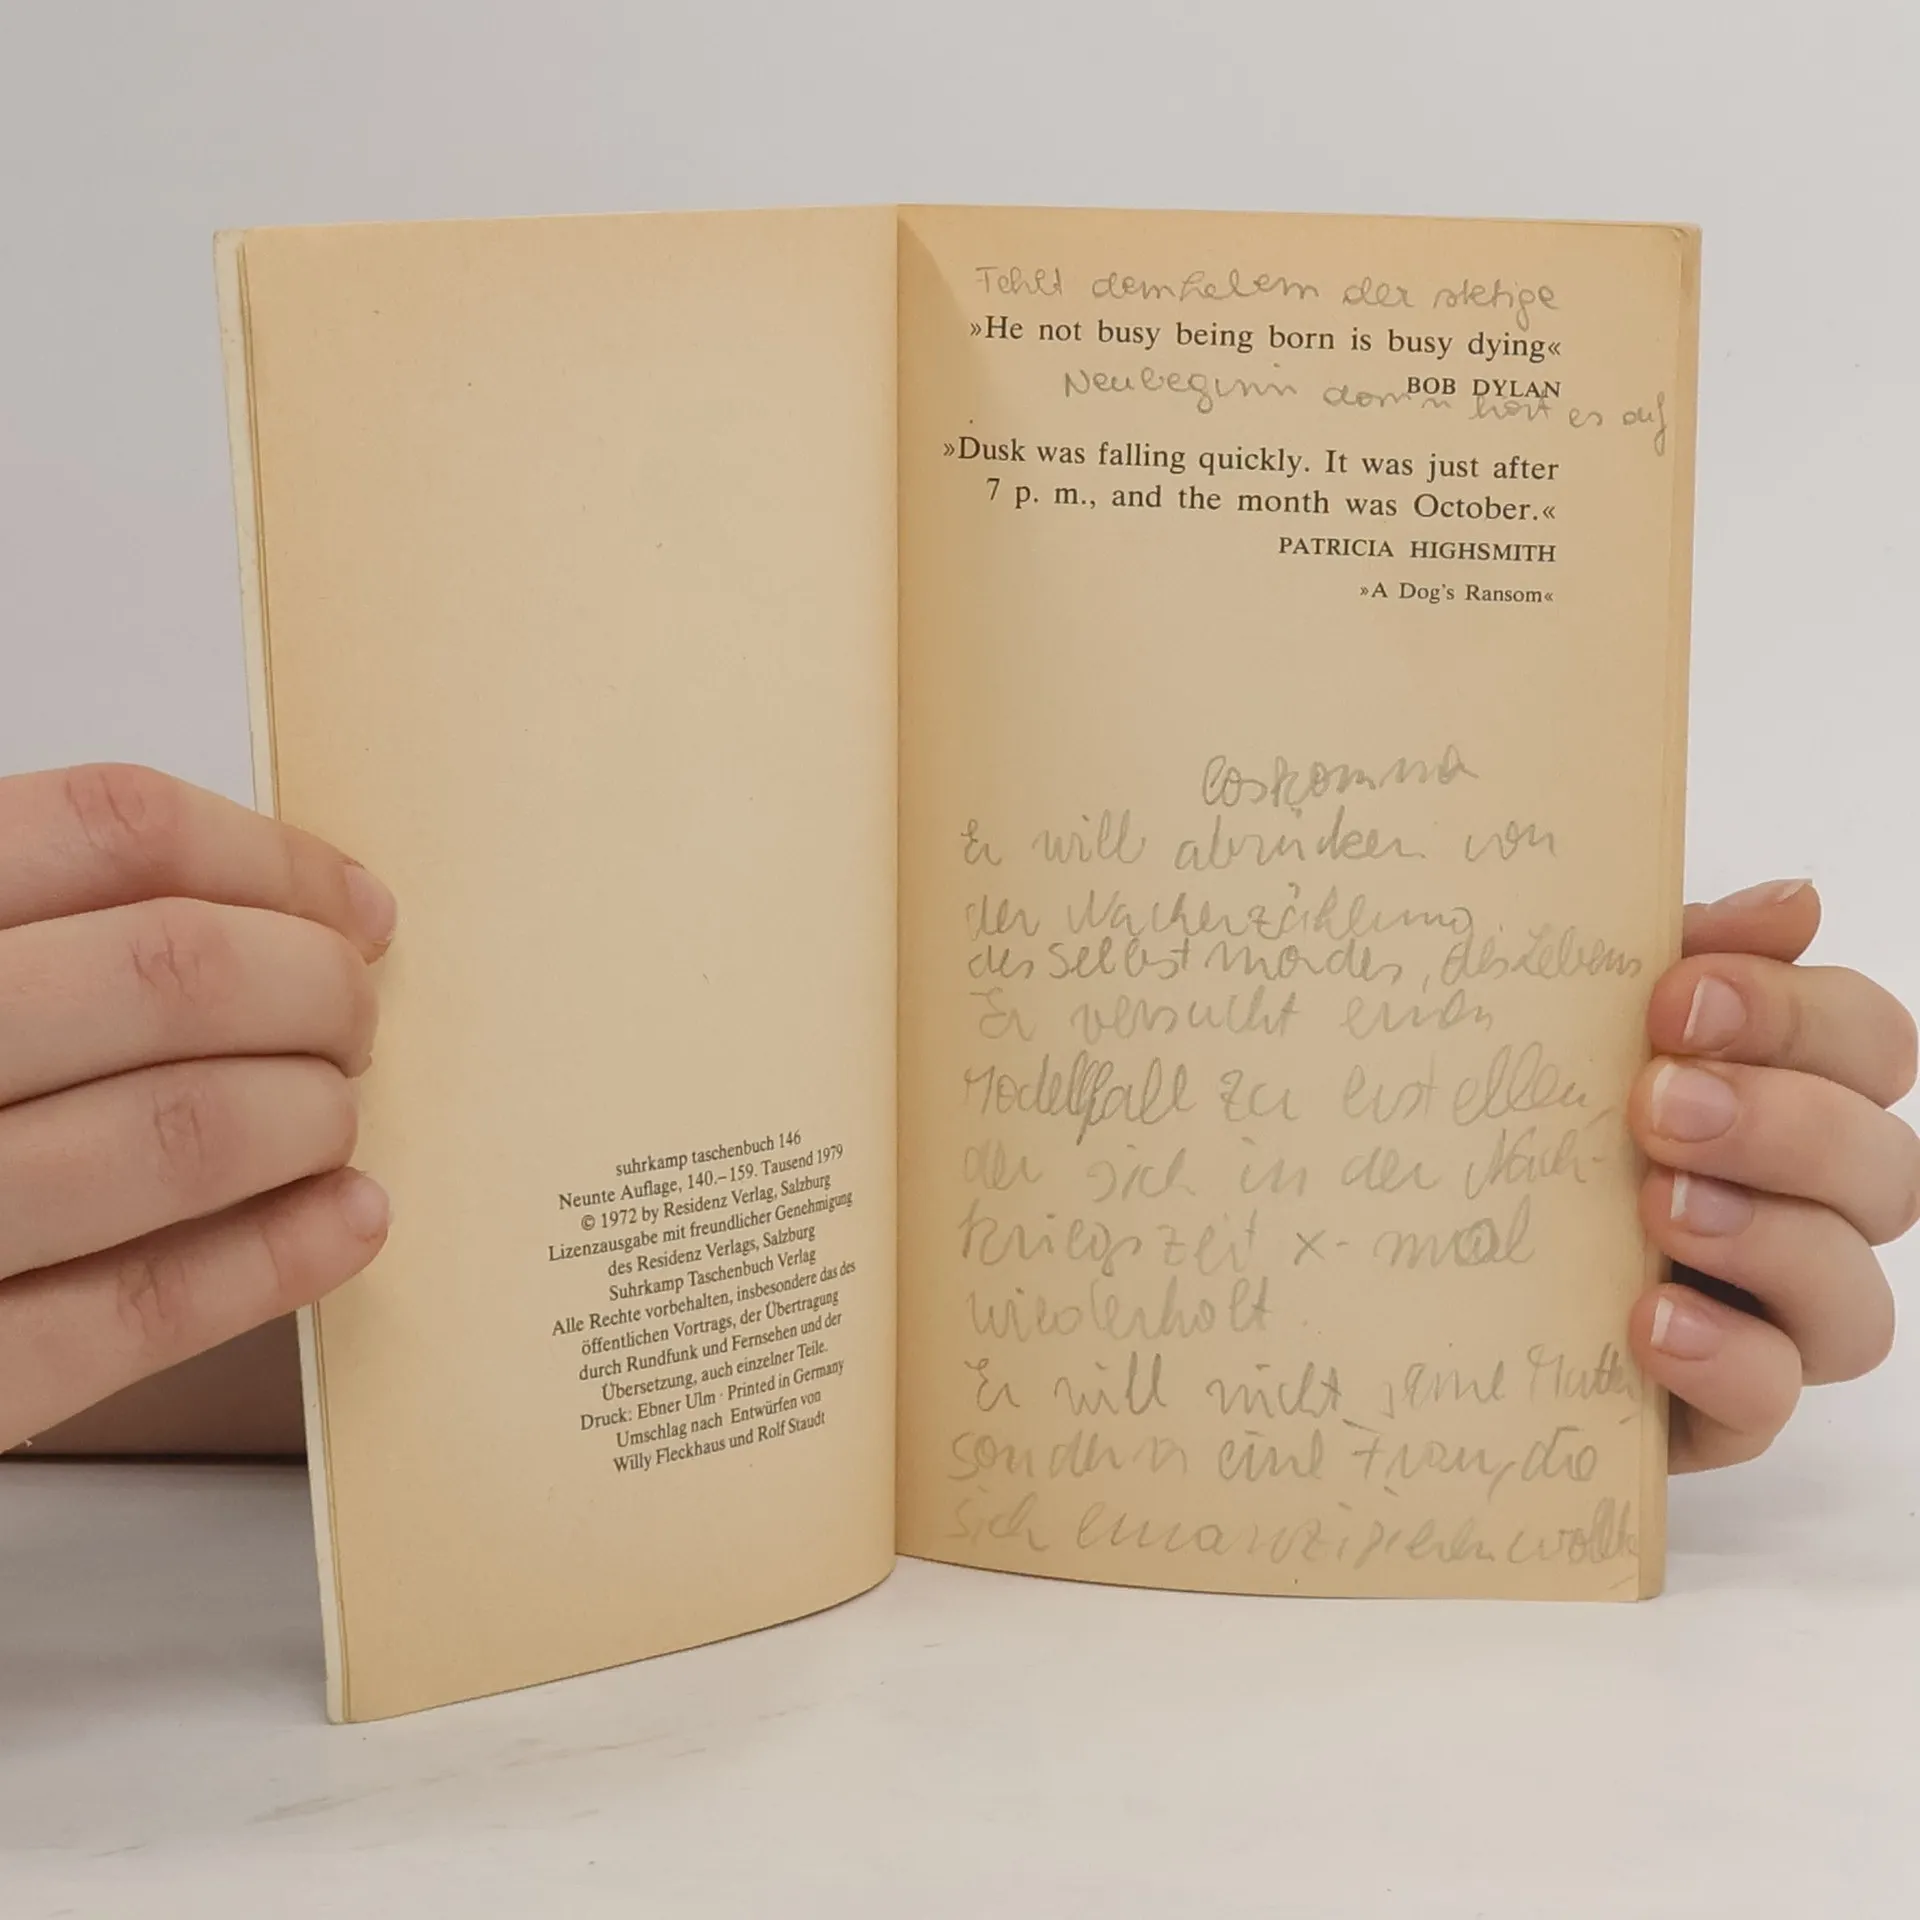 suhrkamp taschenbuch 146
Neunte Auflage, 140.–159. Tausend 1979
© 1972 by Residenz Verlag, Salzburg
Lizenzausgabe mit freundlicher Genehmigung
des Residenz Verlags, Salzburg
Suhrkamp Taschenbuch Verlag
Alle Rechte vorbehalten, insbesondere das des
öffentlichen Vortrags, der Übertragung
durch Rundfunk und Fernsehen und der
Übersetzung, auch einzelner Teile.
Druck: Ebner Ulm · Printed in Germany
Umschlag nach Entwürfen von
Willy Fleckhaus und Rolf Staudt
Fehlt dem Leben der stetige
»He not busy being born is busy dying«
BOB DYLAN
Neubeginn dann hört es auf
»Dusk was falling quickly. It was just after
7 p. m., and the month was October.«
PATRICIA HIGHSMITH
»A Dog's Ransom«
Er will abrücken von
der Nacherzählung
des Selbstmordes, des Lebens
Er versucht einen
Modellfall zu erstellen,
der sich in der Nach-
kriegszeit x-mal
wiederholt.
Er will nicht seine Mutter
sondern eine Frau, die
sich emanzipieren wollte